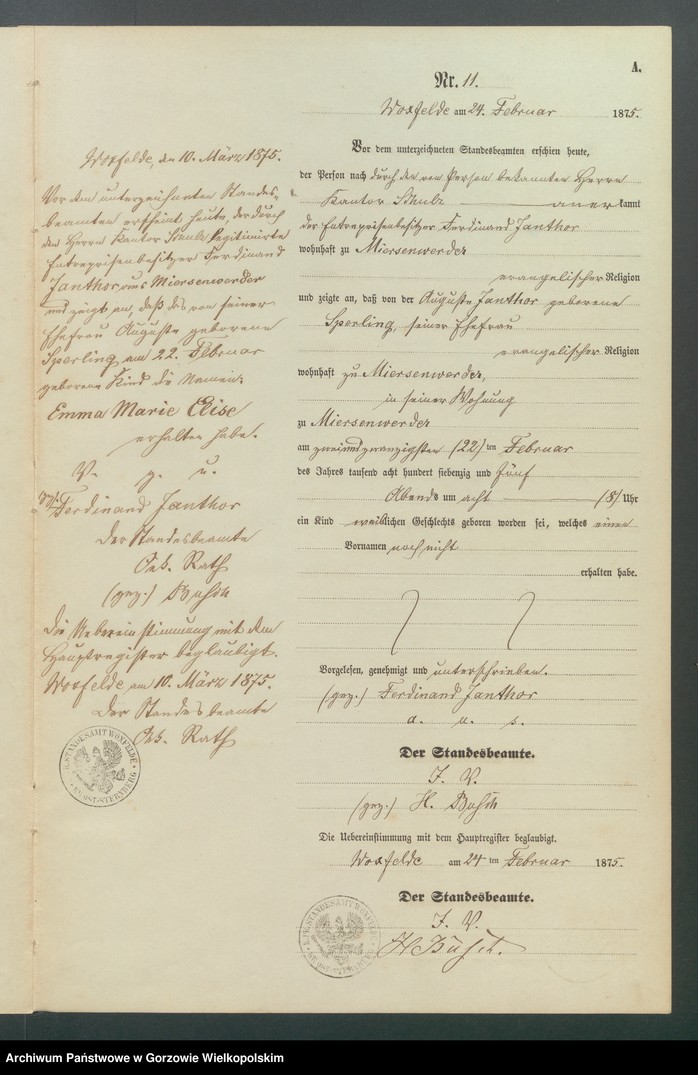 A.
Nr. 11.
Woxfelde am 24. Februar 1875.
Vor dem unterzeichneten Standesbeamten erschien heute,
der Person nach durch den von Person bekannten Herrn
Kantor Schulz anerkannt
der Entreprisenbesitzer Ferdinand Janthor
wohnhaft zu Miersenwerder
evangelischer Religion
und zeigte an, daß von der Auguste Janthor geborene
Sperling, seiner Ehefrau
evangelischer Religion
wohnhaft zu Miersenwerder,
in seiner Wohnung
zu Miersenwerder
am zweiundzwanzigsten (22) ten Februar
des Jahres tausend acht hundert siebenzig und fünf
Abends um acht (8) Uhr
ein Kind weiblichen Geschlechts geboren worden sei, welches einen
Vornamen noch nicht
erhalten habe.
Vorgelesen, genehmigt und unterschrieben.
(gez.) Ferdinand Janthor
a. u. s.
Der Standesbeamte.
I. V.
(gez.) H. Busch
Die Uebereinstimmung mit dem Hauptregister beglaubigt.
Woxfelde am 24 ten Februar 1875.
Der Standesbeamte.
I. V.
H Busch.
Woxfelde, den 10. März 1875.
Vor dem unterzeichneten Standes-
beamten erscheint heute, der durch
den Herrn Kantor Schulz legitimirte
Entreprisenbesitzer Ferdinand
Janthor aus Miersenwerder
und zeigt an, daß das von seiner
Ehefrau Auguste geborene
Sperling am 22. Februar
geborene Kind die Namen:
Emma Marie Elise
erhalten habe.
V. g. u.
Ferdinand Janthor
Der Standesbeamte
Rath
(gez.) Busch
Die Uebereinstimmung mit dem
Hauptregister beglaubigt.
Woxfelde am 10. März 1875.
Der Standesbeamte
Rath
STANDESAMT WOXFELDE
KR. OST-STERNBERG
STANDESAMT WOXFELDE
Archiwum Państwowe w Gorzowie Wielkopolskim